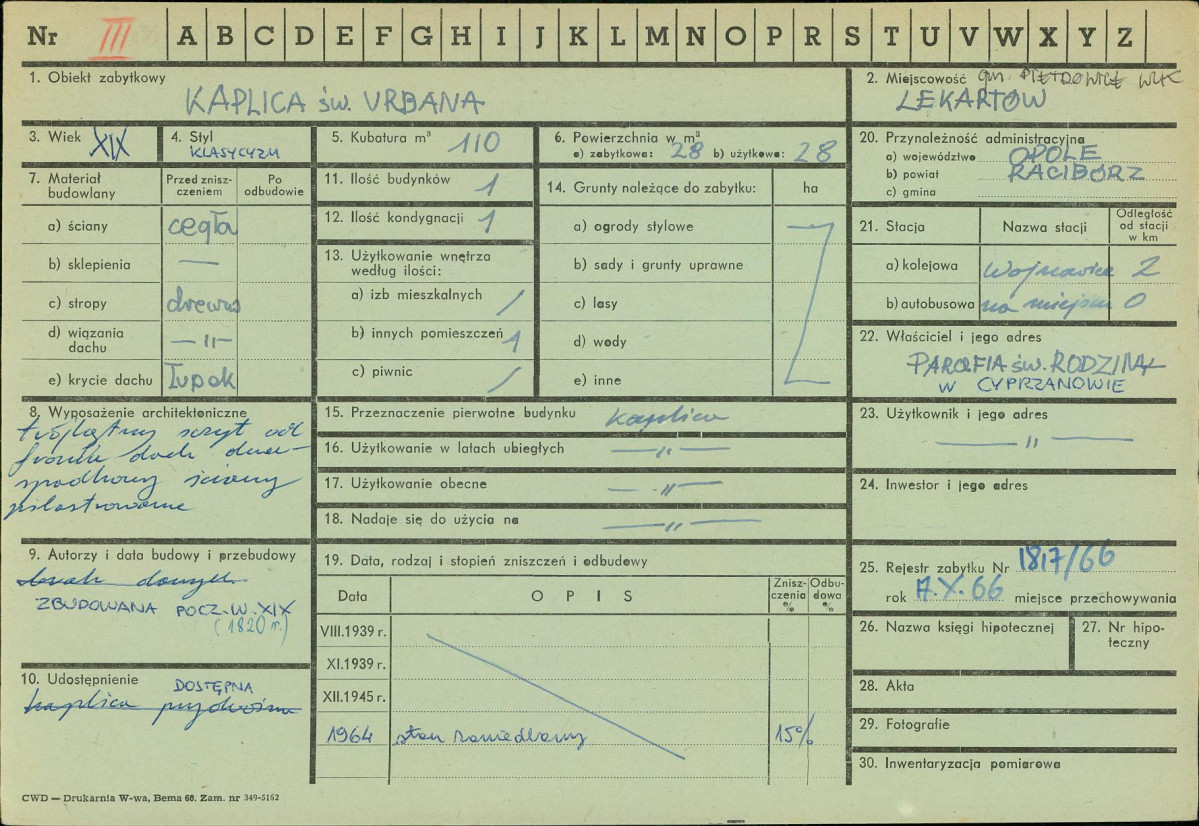 Nr III A B C D E F G H I J K L M N O P R S T U V W X Y Z
1. Obiekt zabytkowy
KAPLICA św. URBANA
2. Miejscowość gm. PIETROWICE WLK
LEKARTÓW
3. Wiek XIX
4. Styl
KLASYCYZM
5. Kubatura m³ 110
6. Powierzchnia w m²
a) zabytkowa: 28 b) użytkowa: 28
20. Przynależność administracyjna
a) województwo OPOLE
b) powiat RACIBÓRZ
c) gmina
7. Materiał budowlany
Przed znisz-
czeniem
Po
odbudowie
a) ściany cegła
b) sklepienia —
c) stropy drewno
d) wiązania
dachu —"—
e) krycie dachu łupek
11. Ilość budynków 1
12. Ilość kondygnacji 1
13. Użytkowanie wnętrza
według ilości:
a) izb mieszkalnych /
b) innych pomieszczeń 1
c) piwnic /
14. Grunty należące do zabytku: ha
a) ogrody stylowe
b) sady i grunty uprawne
c) lasy
d) wody
e) inne
21. Stacja
Nazwa stacji
Odległość
od stacji
w km
a) kolejowa Wojnowice 2
b) autobusowa na miejscu 0
22. Właściciel i jego adres
PARAFIA św. RODZINY
W CYPRZANOWIE
8. Wyposażenie architektoniczne
trójkątny szczyt od
frontu dach dwu-
spadkowy ściany
pilastrowane
15. Przeznaczenie pierwotne budynku kaplica
16. Użytkowanie w latach ubiegłych —"—
17. Użytkowanie obecne —"—
18. Nadaje się do użycia na —"—
23. Użytkownik i jego adres
—"—
24. Inwestor i jego adres
9. Autorzy i data budowy i przebudowy
brak danych
ZBUDOWANA POCZ. W. XIX
(1820 r.)
19. Data, rodzaj i stopień zniszczeń i odbudowy
Data
OPIS
Znisz-
czenia
%
Odbu-
dowa
%
VIII.1939 r.
XI.1939 r.
XII.1945 r.
1964 stan zaniedbany 15%
25. Rejestr zabytku Nr 1817/66
rok 7.X.66 miejsce przechowywania
26. Nazwa księgi hipotecznej
27. Nr hipo-
teczny
10. Udostępnienie
DOSTĘPNA
kaplica przydrożna
28. Akta
29. Fotografie
30. Inwentaryzacja pomiarowa
CWD — Drukarnia W-wa, Bema 60. Zam. nr 349-5162